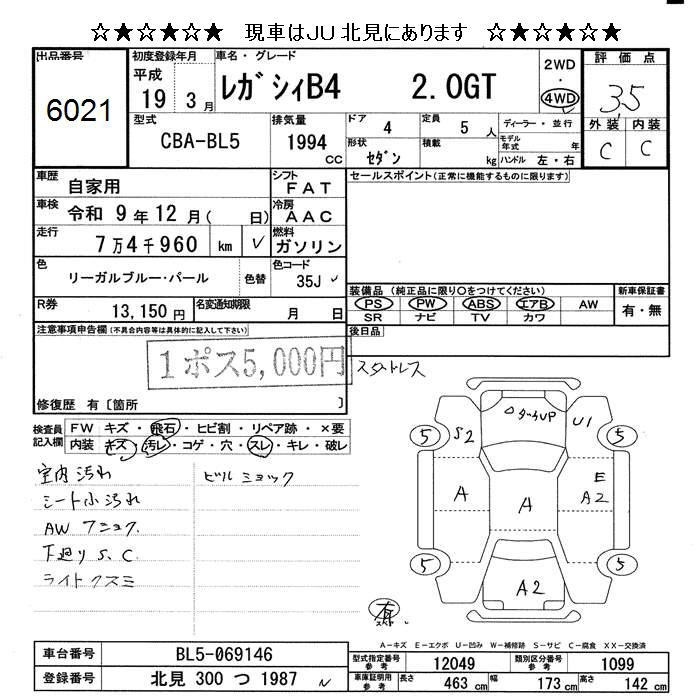 ☆★☆★☆★ 現車はJU北見にあります ☆★☆★☆★
出品番号
6021
初度登録年月
平成
19 3月
車名・グレード
レガシィB4 2.0GT
2WD
・
4WD
評価点
3.5
外装 内装
C C
型式
CBA-BL5
排気量
1994 cc
ドア
4
形状
セダン
定員
5 人
積載
kg
ディーラー・並行
モデル年式 年
ハンドル 左・右
車歴
自家用
シフト
FAT
車検
令和 9年12月( 日)
冷房
AAC
走行
7万4千960 km
燃料
ガソリン
色
リーガルブルー・パール
色替
色コード
35J
R券
13,150円
名変通知期限
月 日
セールスポイント(正常に機能するものに限ります)
装備品 (純正品に限り○をつけてください)
PS PW ABS エアB AW
SR ナビ TV カワ
新車保証書
有・無
後日品
注意事項申告欄(不具合内容等は具体的に記入して下さい)
1ポス5,000円
スタットレス
修復歴 有〔箇所 〕
検査員記入欄
FW キズ・飛石・ヒビ割・リペア跡・×要
内装 キズ・汚レ・コゲ・穴・スレ・キレ・破レ
室内汚れ
シート小汚れ
AW フショク
下廻りS.C.
ライトクスミ
ビルショック
S2
U1
5 5
A
A
E
A2
5 5
A2
A-キズ E-エクボ U-凹み W-補修跡 S-サビ C-腐食 XX-交換済
車台番号
BL5-069146
登録番号
北見 300 つ 1987
型式指定番号
参考
12049
類別区分番号
参考
1099
車庫証明用
参考
長さ 463 cm
幅 173 cm
高さ 142 cm